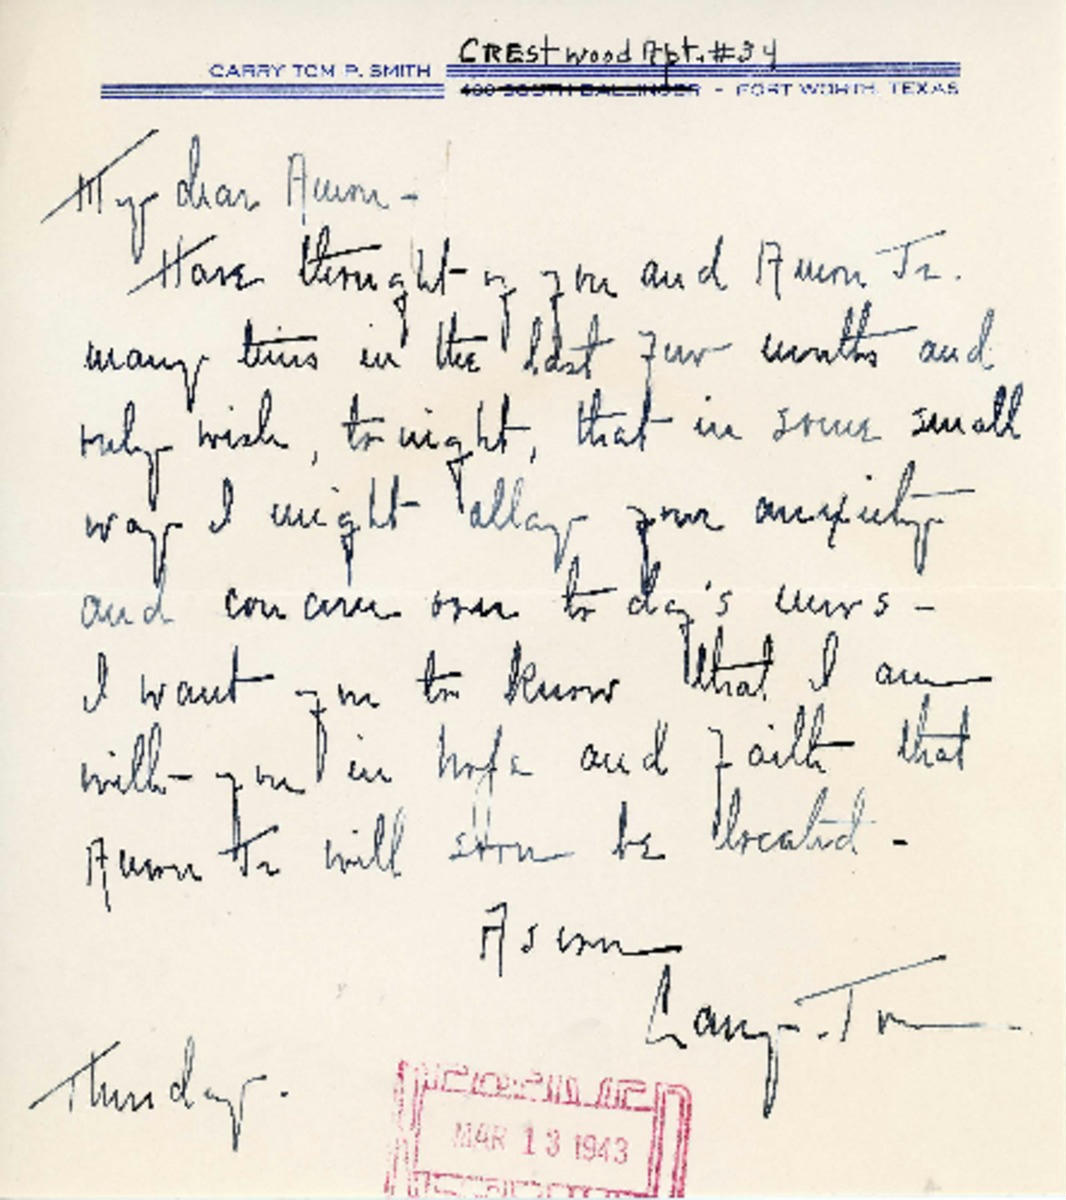 CRESTwood Apt. #34
CARRY TOM P. SMITH
400 SOUTH BALLINGER - FORT WORTH, TEXAS
My dear Amon -
Have thought of you and Amon Jr.
many times in the last few months and
only wish, tonight, that in some small
way I might allay your anxiety
and concern over to day's news -
I want you to know that I am
with you in hope and faith that
Amon Jr will soon be located -
As ever
Carry-Tom
Thursday.
MAR 13 1943